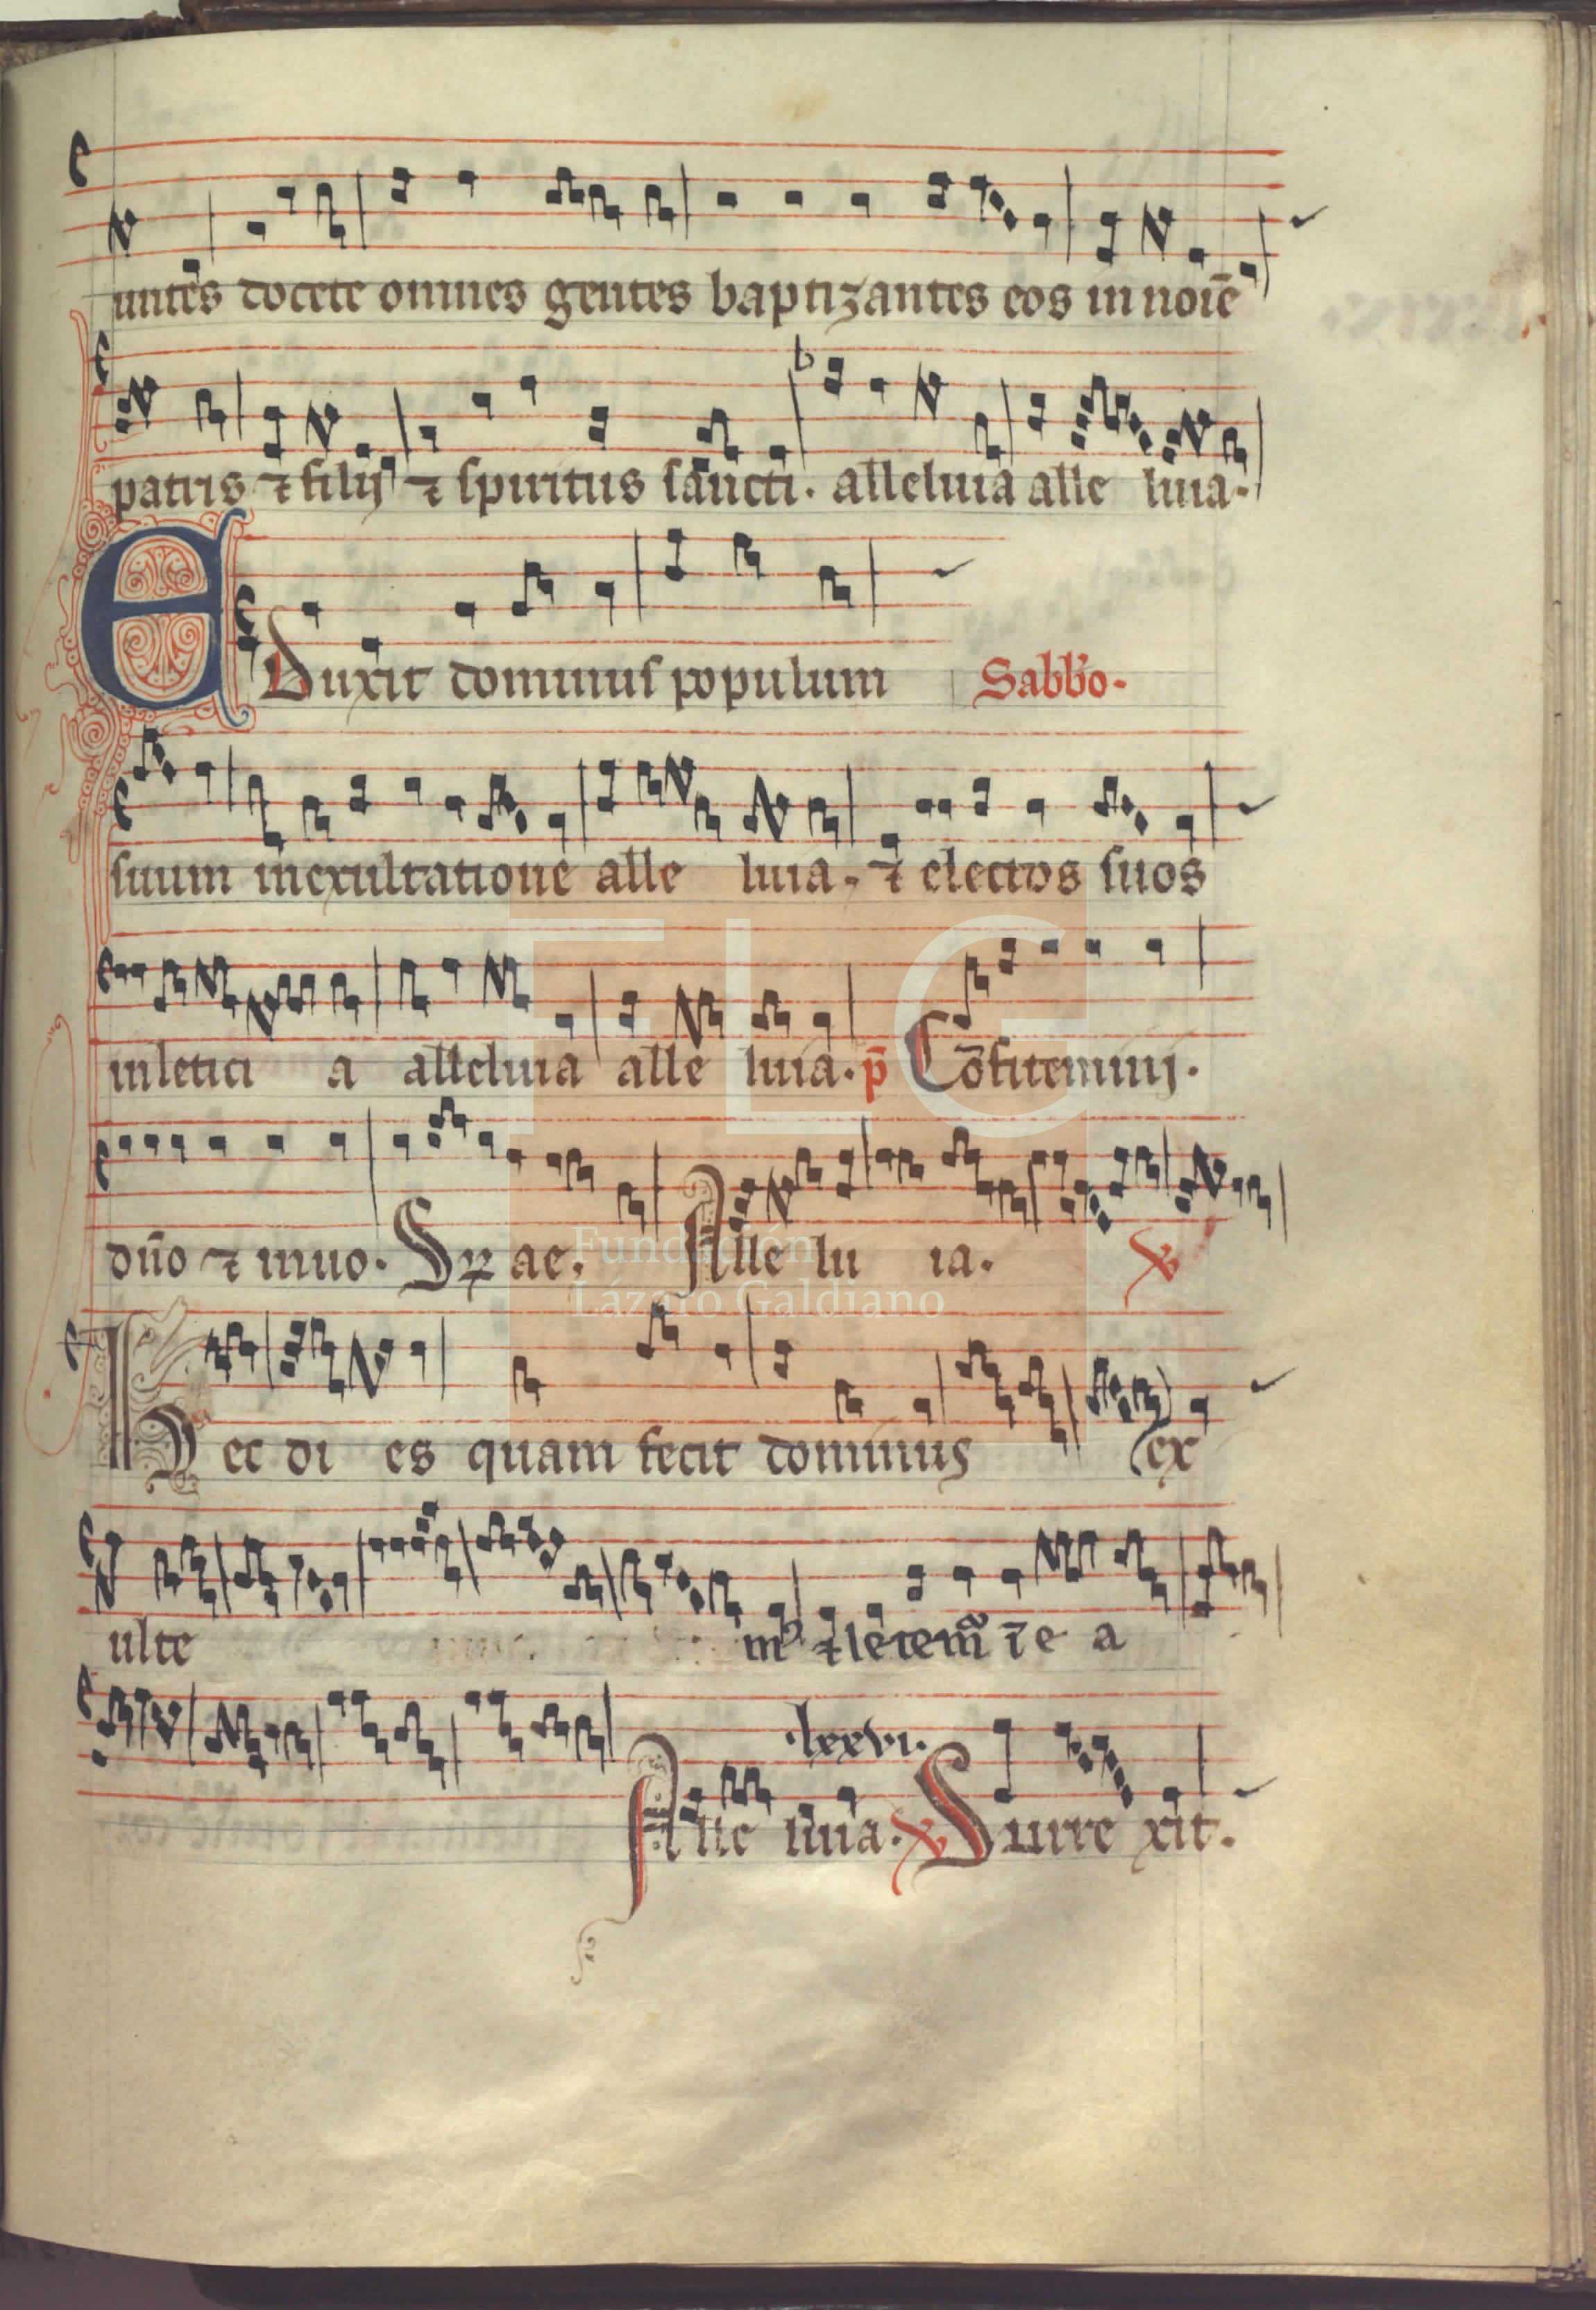 untes docete omnes gentes baptizantes eos in noīe
patris ⁊ filij ⁊ spiritus sancti. alleluia alle luia.
Eduxit dominus populum Sabb̃o.
suum in exultatione alle luia. ⁊ electos suos
in letici a alleluia alle luia. p̄ Cōfitemini.
dño ⁊ inuo. Sꝑ ae. Alle lu ia. ℣
Hec di es quam fecit dominus ex
ulte mꝰ ⁊ letem̃ ī e a
.lxxvi.
Alle luia. ℣ Surre xit.
FLG
Fundación
Lázaro Galdiano